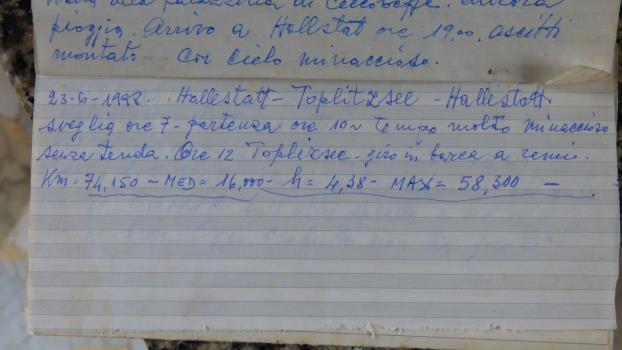 pioggia. Arrivo a Hallstat ore 19,00. ascitti
montato. Con cielo minaccioso.
23-6-1998. Hallestatt - Toplitzsee - Hallestatt.
sveglia ore 7 - partenza ore 10 tempo molto minaccioso
senza tenda. Ore 12 Toplitzsee - giro in barca a remi.
Km. 74,150 - MED = 16,000 - h = 4,38 - MAX = 58,300 -